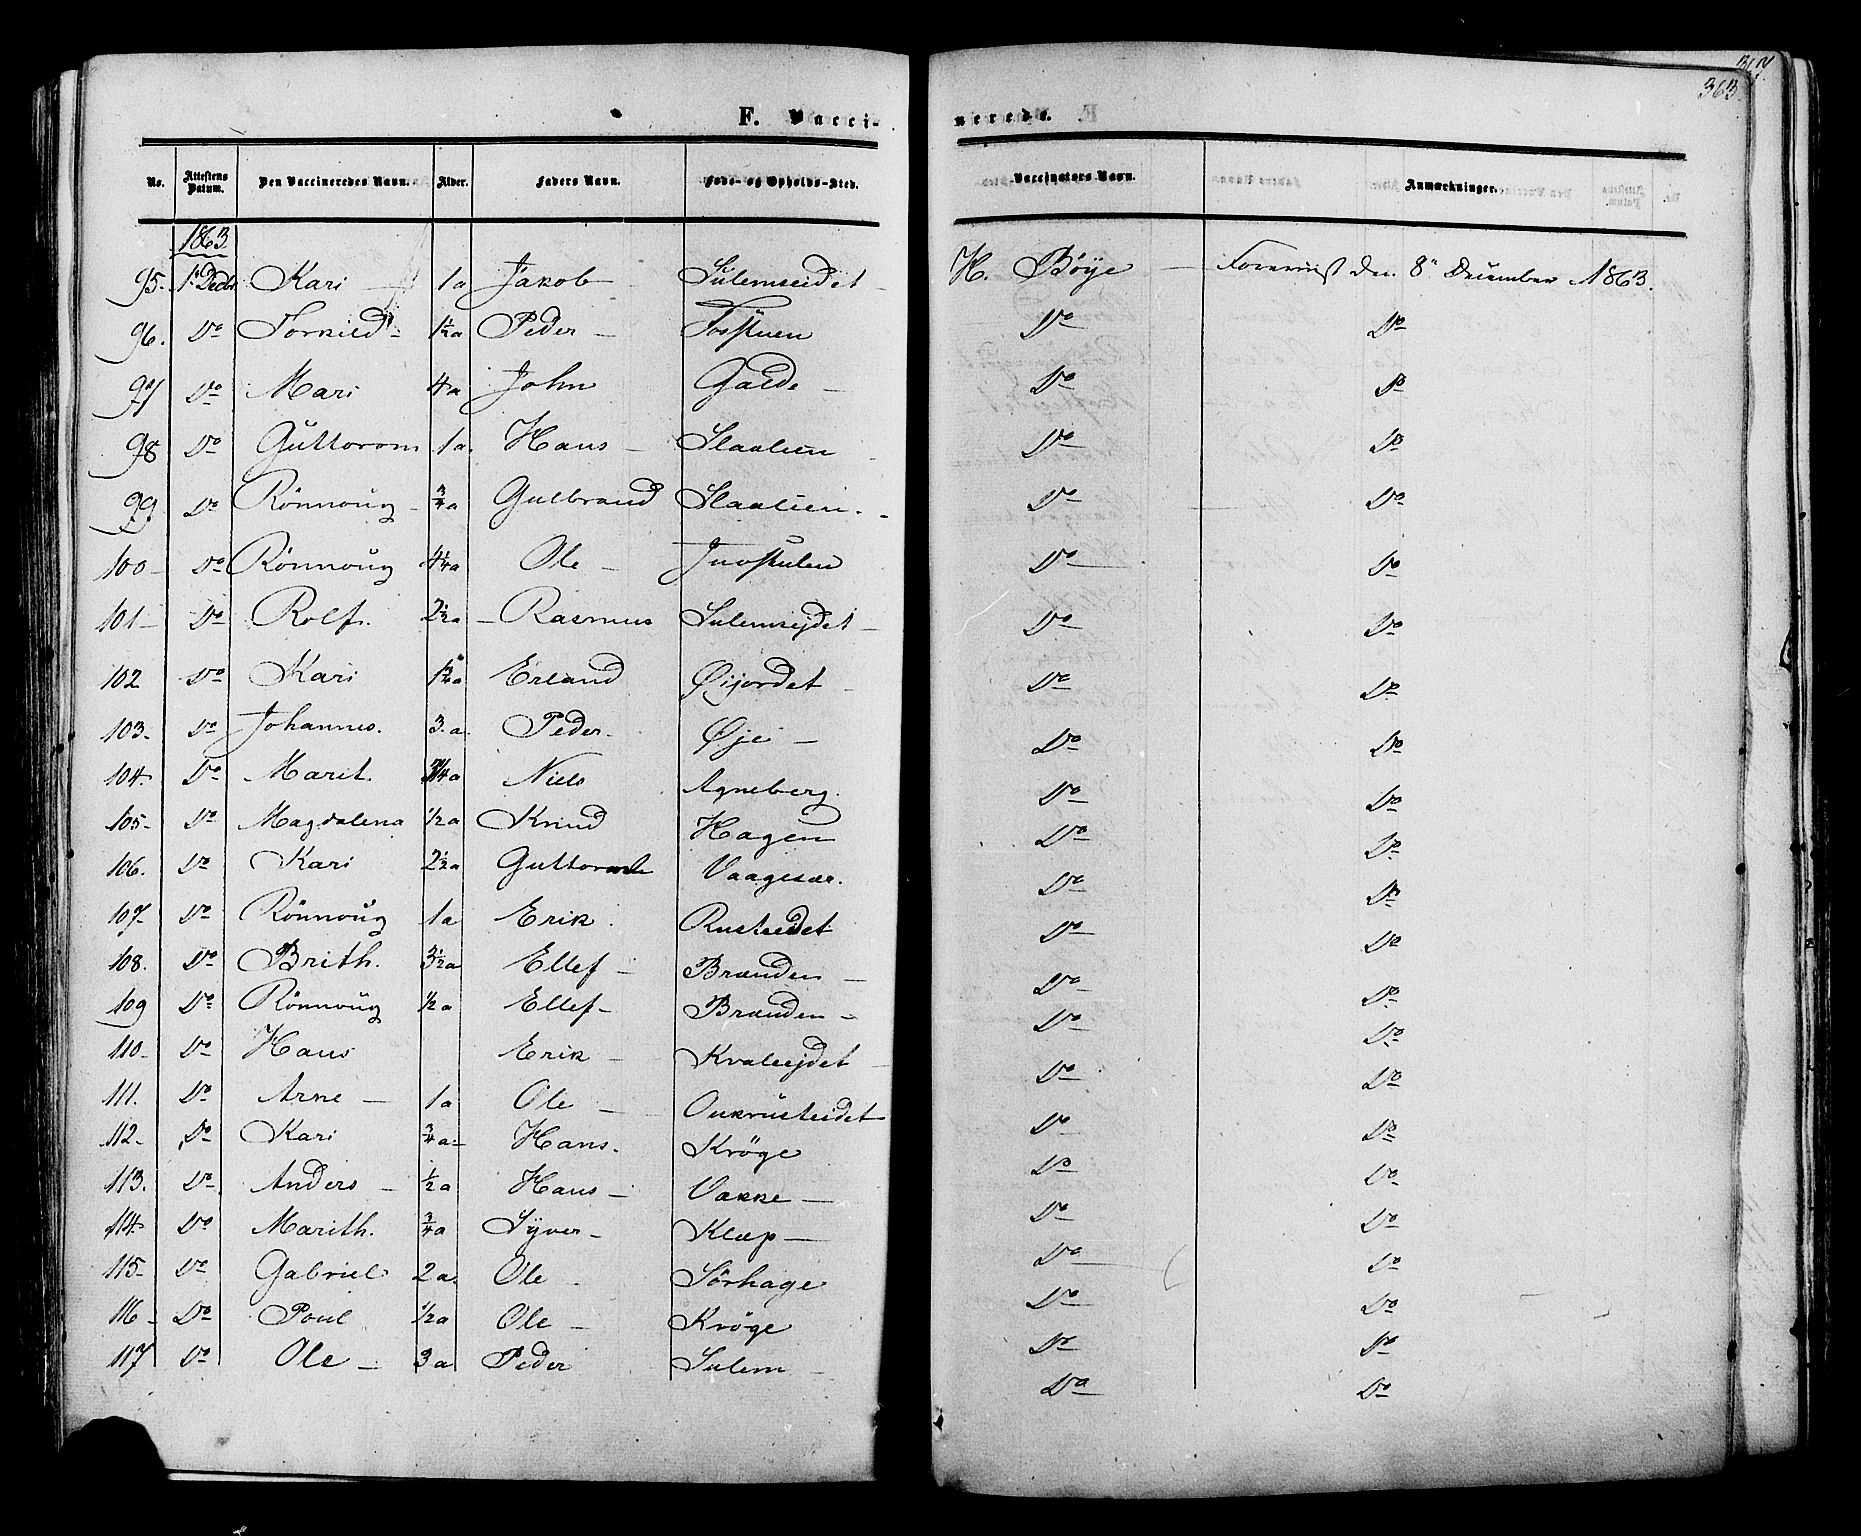 363.
F. Vacci-
nerede.
No. Attestens Datum. Den Vaccineredes Navn. Alder. Faders Navn. Føde- og Opholds-Sted. Vaccinators Navn. Anmærkninger.
1863
95. 1. Decbr Kari 1a Jakob Sulemseidet H. Böye Foreviist den 8de December 1863.
96. Do 1½a Peder Do Do
97 Do Mari 4a John Galde Do Do
98 Do Guttorom 1a Hans Slaalien Do Do
99 Do Rönnoug ¾a Gulbrand Slaalien Do Do
100 Do Rönnoug 4¼a Ole Do Do
101 Do Rolf. 2½a Rasmus Sulemsejdet Do Do
102 Do Kari 1¾a Erland Øijordet Do Do
103. Do Johannes. 3.a. Peder. Øje Do Do
104. Do Marit. Niels Agneberg. Do Do
105 Do Magdalena ½a Knud Hagen Do Do
106. Do Kari 2½a Guttorm Vaagesær. Do Do
107. Do Rönnoug 1a Erik. Rusteidet Do Do
108. Do Brith. 3½a Ellef Brænden Do Do
109 Do Rönnoug ½a Ellef Brænden Do Do
110 Do Hans Erik Kvalejdet Do Do
111. Do Arne 1a Ole Do Do
112 Do Kari ¾a Hans. Kröge Do Do
113. Do Anders ½a Hans Vække Do Do
114 Do Marith. ¾a Syver Klæp Do Do
115 Do Gabriel 2a. Ole Sörhage Do Do
116 Do Poul ½a Ole Kröge Do Do
117 Do Ole 3a Peder Sulem Do Do